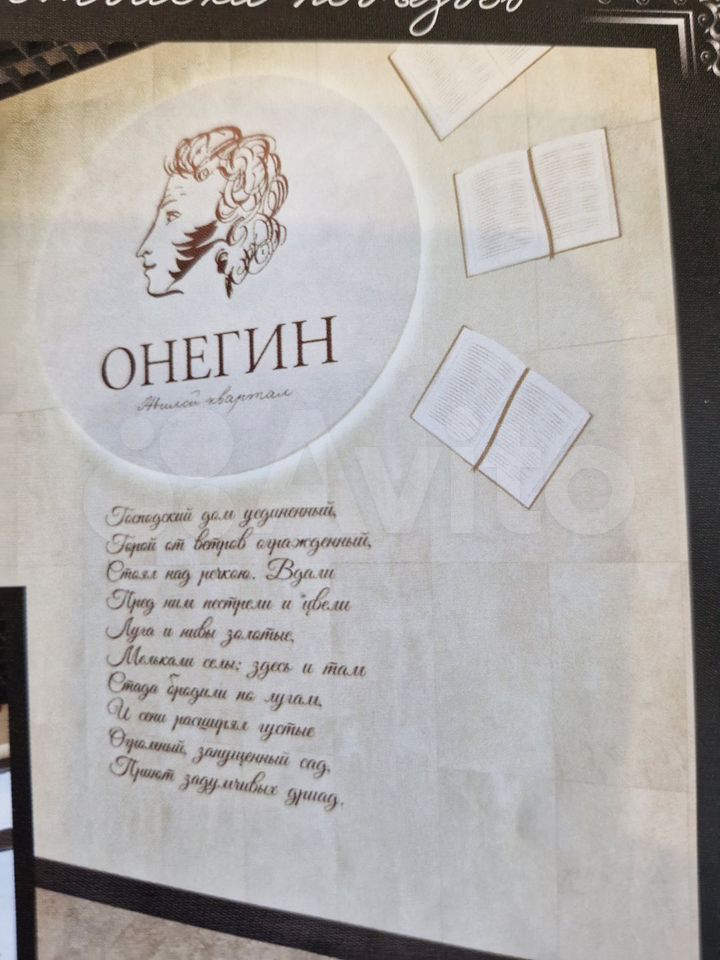 ОНЕГИН
Жилой квартал
Господский дом уединенный,
Горой от ветров огражденный,
Стоял над речкою. Вдали
Пред ним пестрели и цвели
Луга и нивы золотые,
Мелькали селы; здесь и там
Стада бродили по лугам,
И сени расширял густые
Огромный, запущенный сад,
Приют задумчивых дриад.
Avito